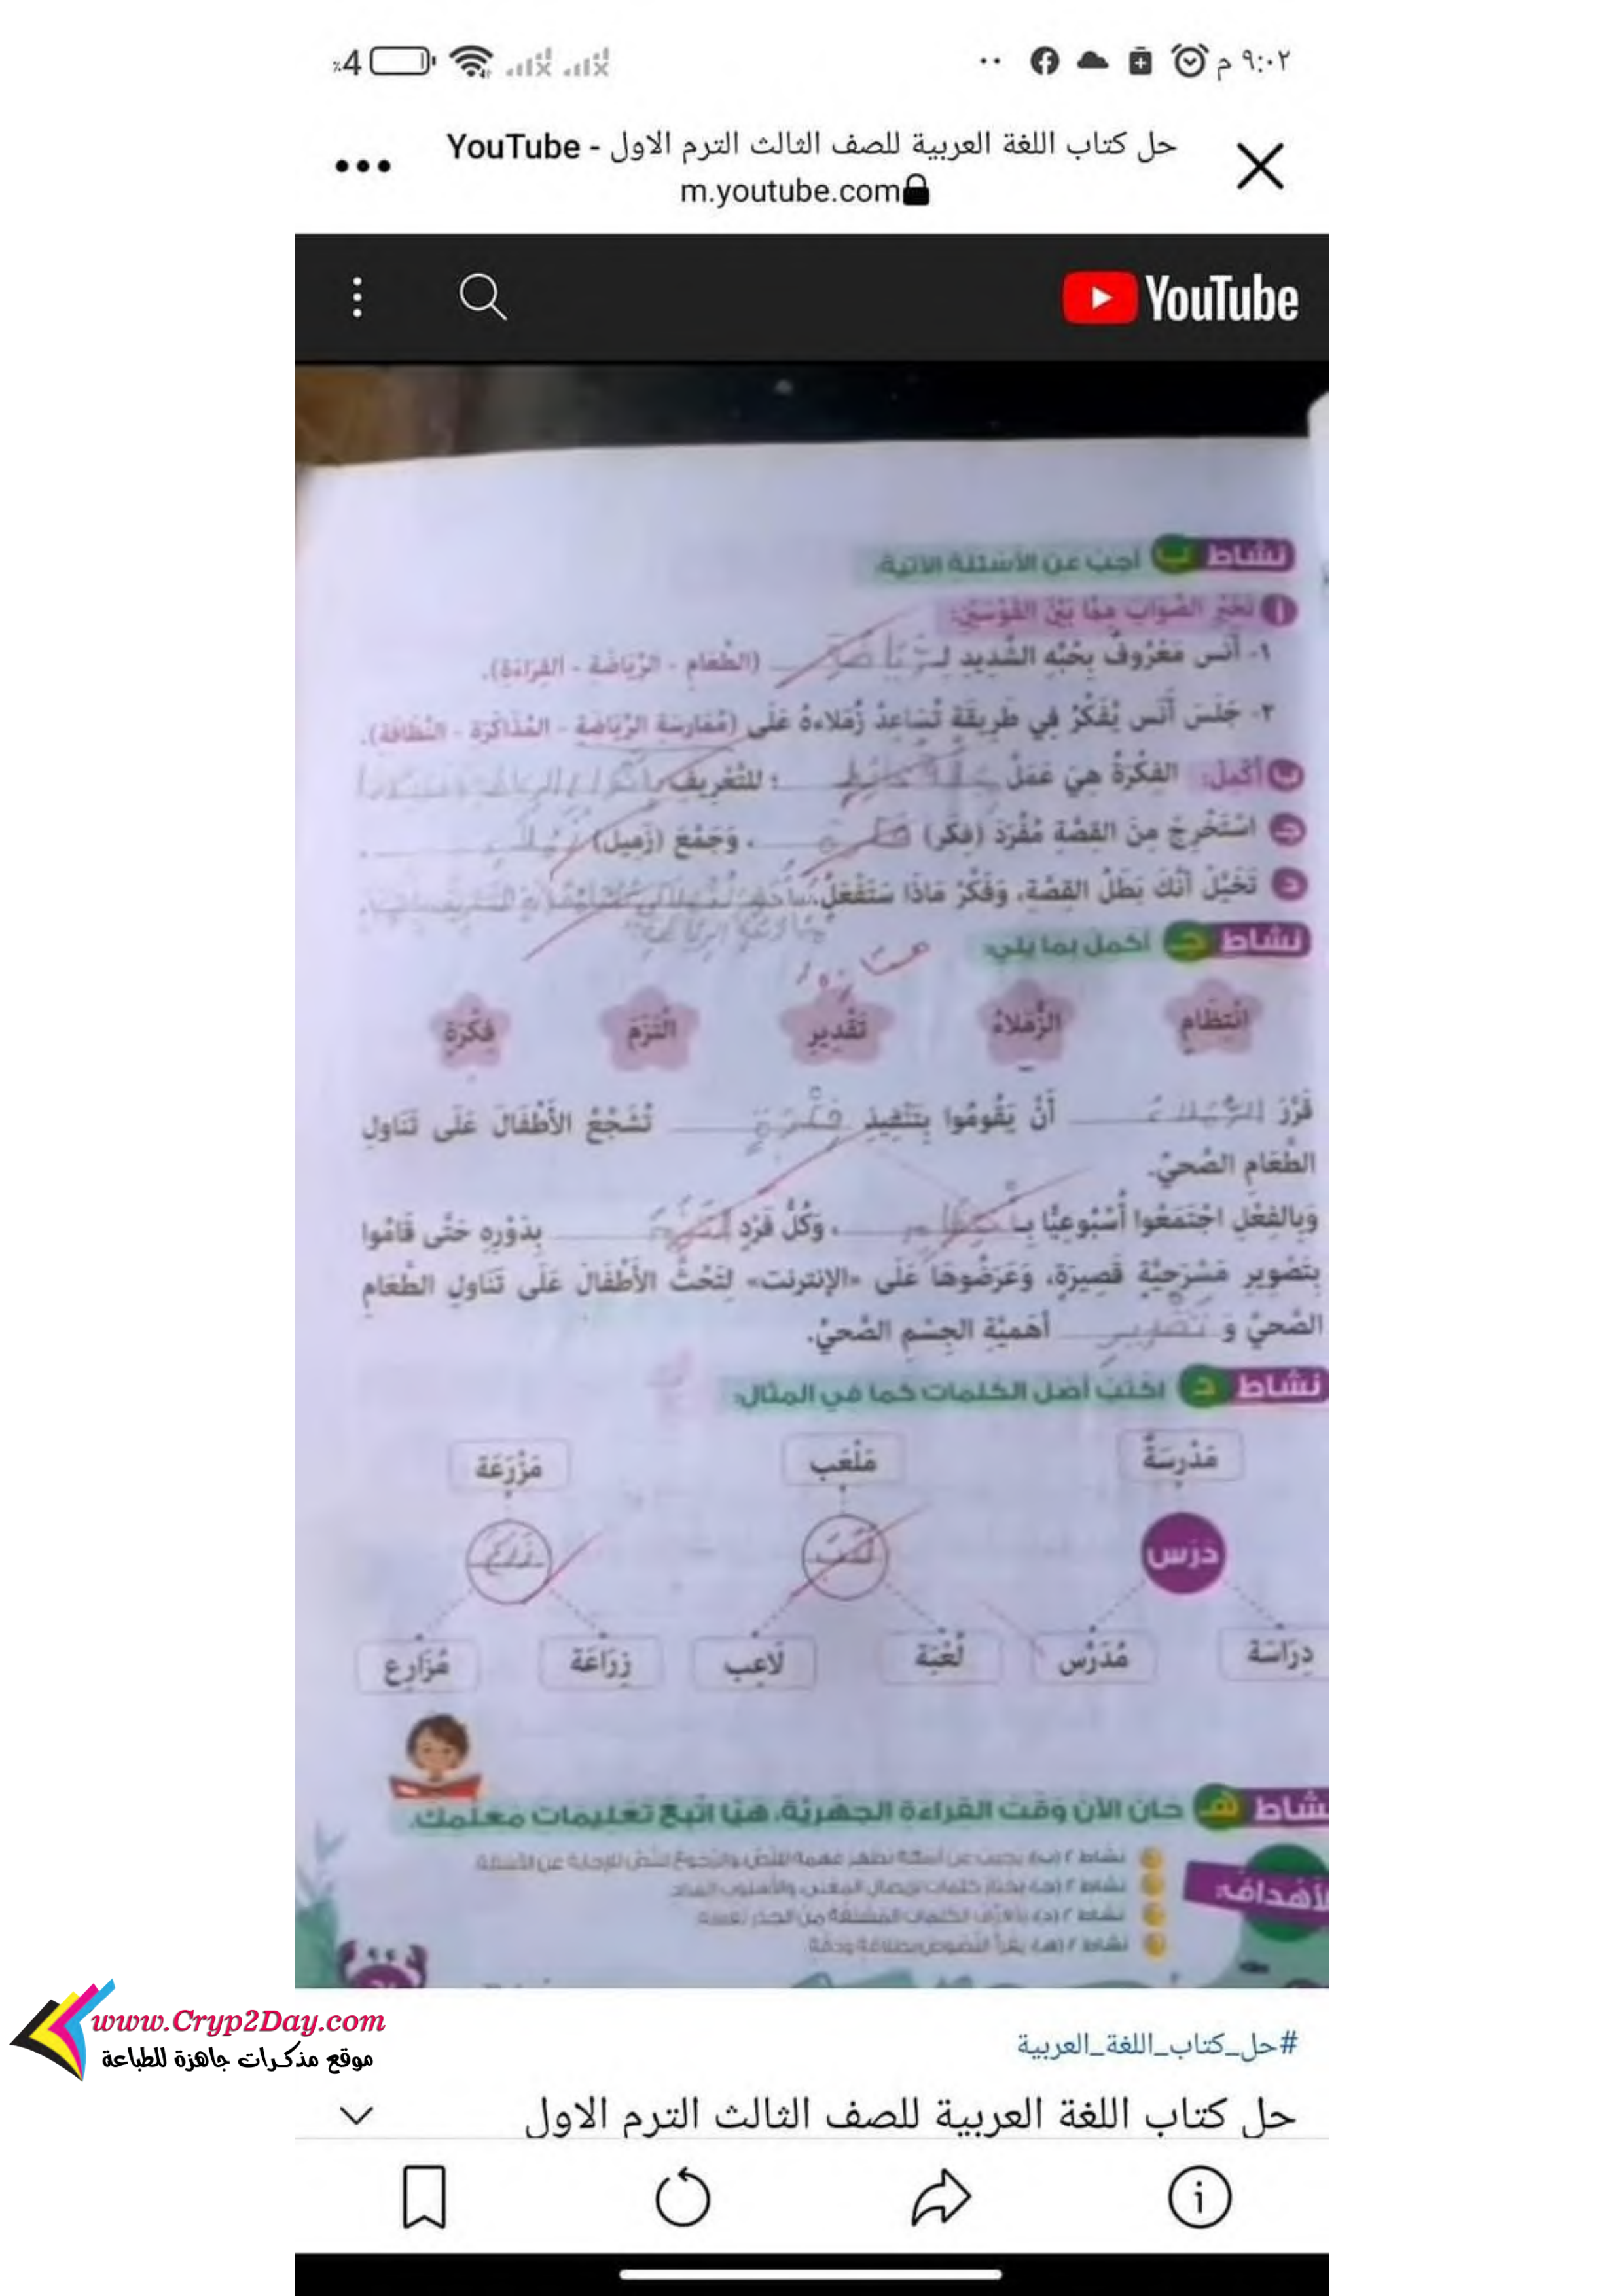 ٩:٠٢ م
٪4
حل كتاب اللغة العربية للصف الثالث الترم الاول - YouTube
m.youtube.com
YouTube
نشاط ب أجب عن الأسئلة الآتية:
أ تَخَيَّرِ الصَّوَابَ مِمَّا بَيْنَ القَوْسَيْنِ:
١- أَنَس مَعْرُوفٌ بِحُبِّهِ الشَّدِيدِ لِـ (الطَّعَامِ - الرِّيَاضَةِ - القِرَاءَةِ).
٢- جَلَسَ أَنَس يُفَكِّرُ فِي طَرِيقَةٍ تُسَاعِدُ زُمَلَاءَهُ عَلَى (مُمَارَسَةِ الرِّيَاضَةِ - المُذَاكَرَةِ - النَّظَافَةِ).
ب أَكْمِلْ: الفِكْرَةُ هِيَ عَمَلُ ؛ لِلتَّعْرِيفِ
ج اسْتَخْرِجْ مِنَ القِصَّةِ مُفْرَدَ (فِكَر) ، وَجَمْعَ (زَمِيل)
د تَخَيَّلْ أَنَّكَ بَطَلُ القِصَّةِ، وَفَكِّرْ مَاذَا سَتَفْعَلُ.
نشاط ج أكمل بما يلي:
انْتِظَامٍ الزُّمَلَاءُ تَقْدِيرِ الْتَزَمَ فِكْرَةٍ
قَرَّرَ الزملاء أَنْ يَقُومُوا بِتَنْفِيذِ فكرة تُشَجِّعُ الأَطْفَالَ عَلَى تَنَاوُلِ
الطَّعَامِ الصِّحيِّ.
وَبِالفِعْلِ اجْتَمَعُوا أُسْبُوعِيًّا بِـ ، وَكُلُّ فَرْدٍ التزم بِدَوْرِهِ حَتَّى قَامُوا
بِتَصْوِيرِ مَسْرَحِيَّةٍ قَصِيرَةٍ، وَعَرَضُوهَا عَلَى «الإنترنت» لِتَحُثَّ الأَطْفَالَ عَلَى تَنَاوُلِ الطَّعَامِ
الصِّحيِّ وَ أَهَمِّيَّةِ الجِسْمِ الصِّحيِّ.
نشاط د اكتب أصل الكلمات كما في المثال:
مَدْرَسَةٌ مَلْعَب مَزْرَعَة
دَرَسَ لعب زرع
دِرَاسَة مُدَرِّس لُعْبَة لَاعِب زِرَاعَة مُزَارِع
نشاط هـ حان الآن وقت القراءة الجهرية، هيا اتبع تعليمات معلمك.
الأهداف:
نشاط ٢ (هـ): يقرأ النصوص بطلاقة ودقة
www.Cryp2Day.com
موقع مذكرات جاهزة للطباعة
#حل_كتاب_اللغة_العربية
حل كتاب اللغة العربية للصف الثالث الترم الاول